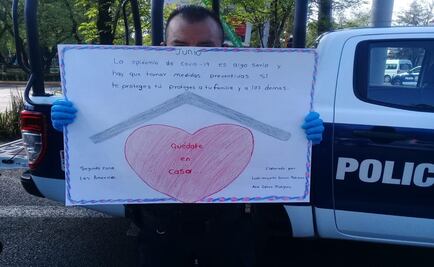 JUNIO
La epidemia de covid-19 es algo serio y
hay que tomar medidas preventivas si
te proteges tu proteges a tu familia y a los demas.
Quédate
en
casa...
Segunda zona
Las Americas
Elaborado por
POLIC